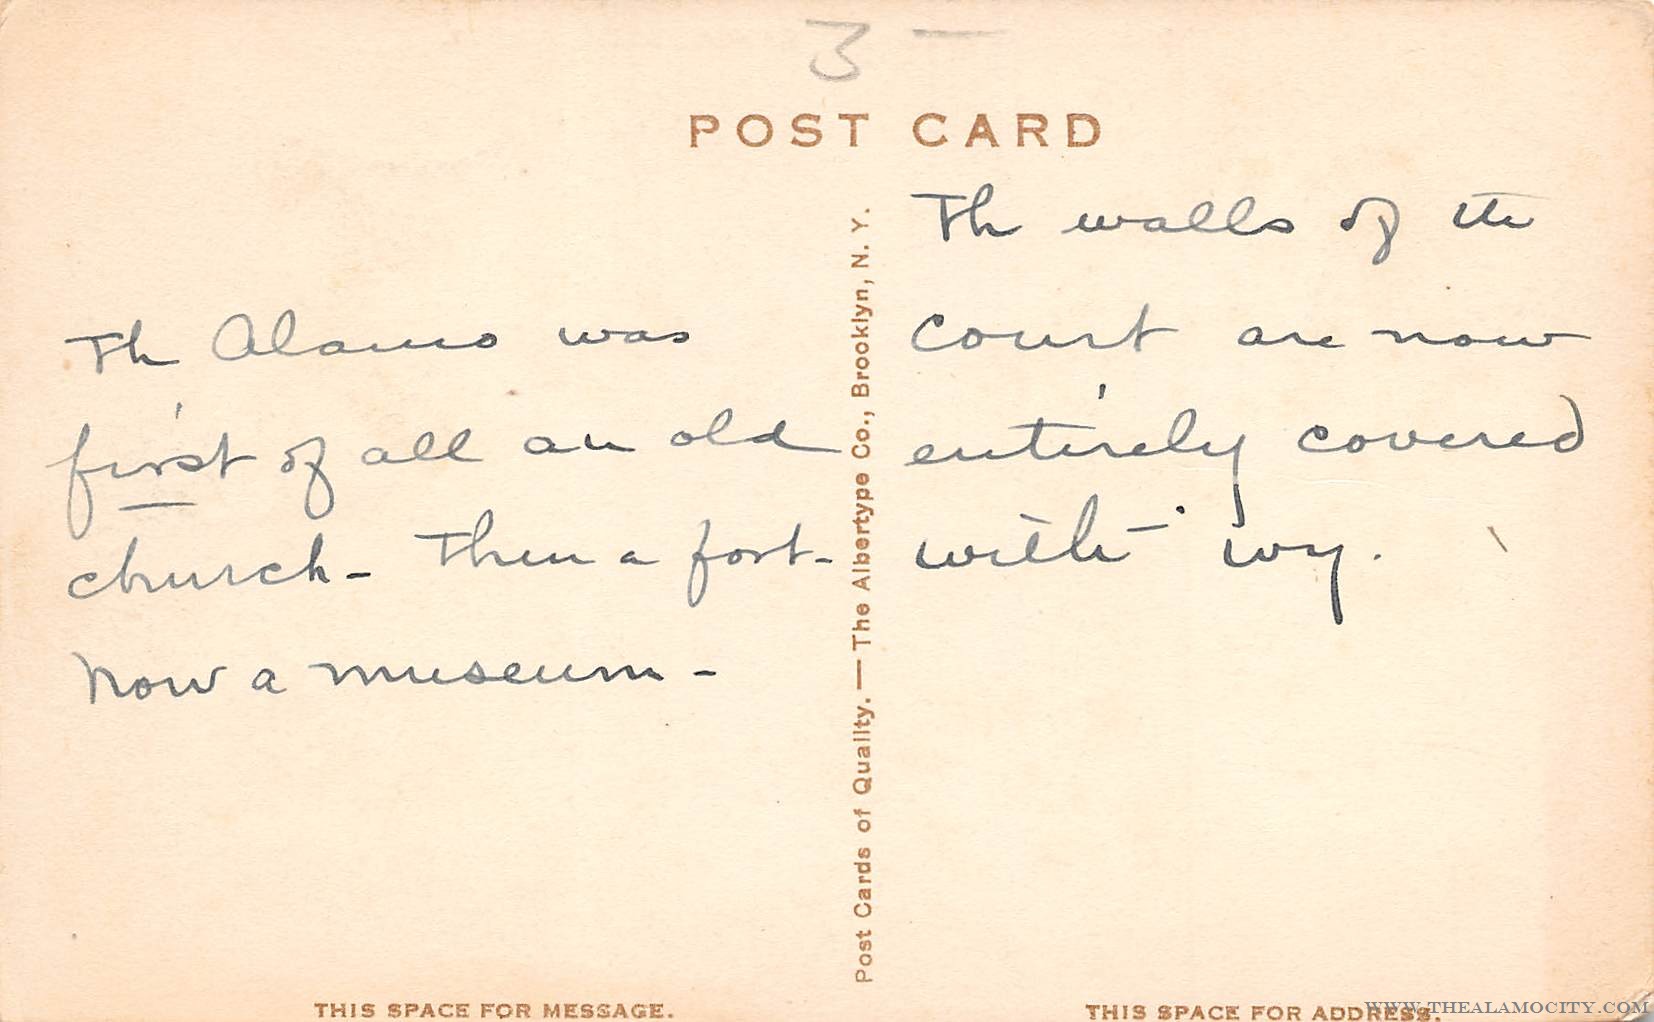 3 —
POST CARD
Th Alamo was
first of all an old
church - Then a fort -
Now a museum -
Post Cards of Quality. — The Albertype Co., Brooklyn, N. Y.
Th walls of the
court are now
entirely covered
with ivy.
THIS SPACE FOR MESSAGE.
THIS SPACE FOR ADDRESS.
WWW.THEALAMOCITY.COM